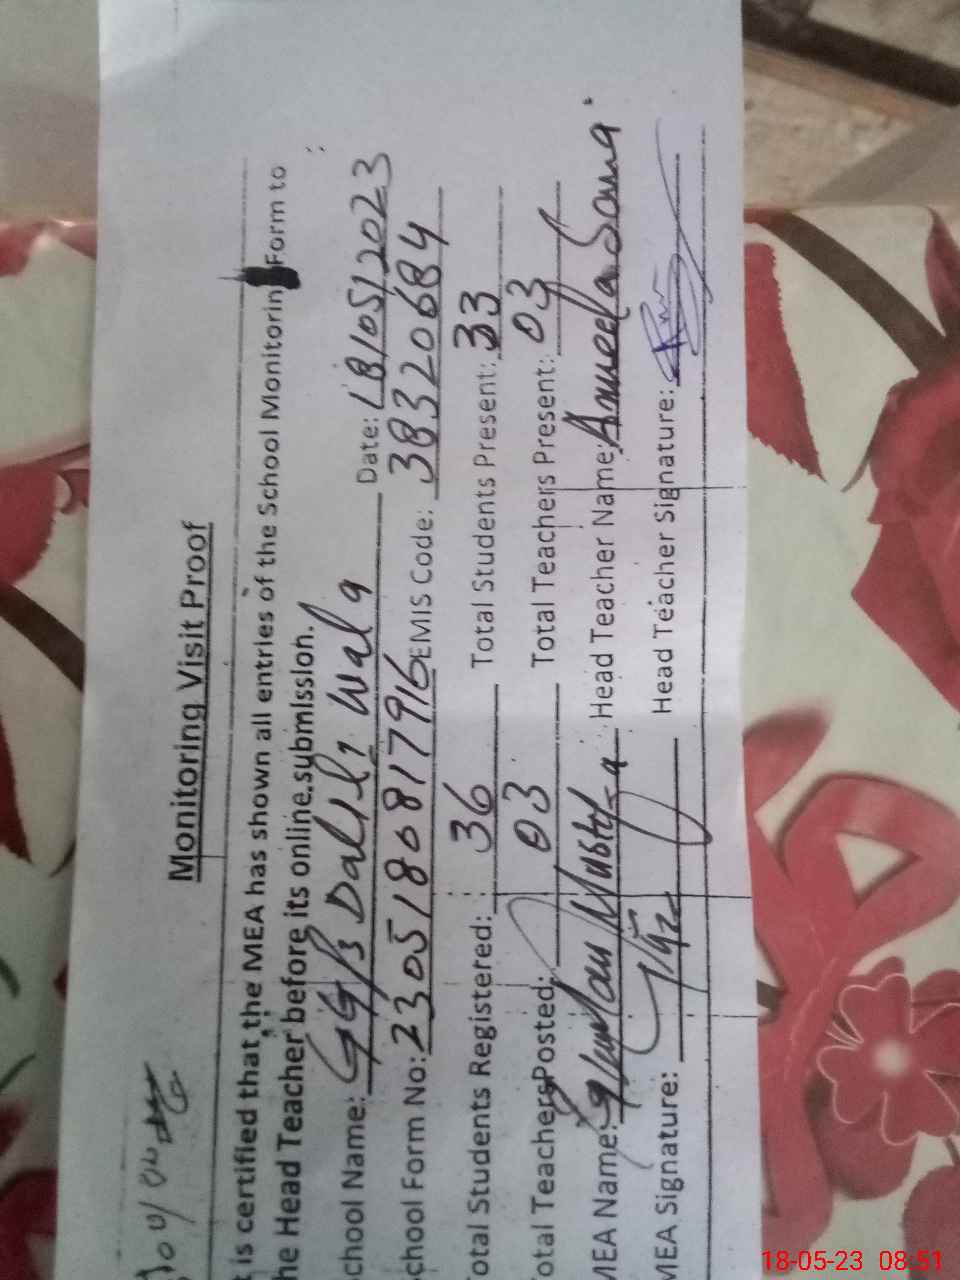 Monitoring Visit Proof
t is certified that the MEA has shown all entries of the School Monitorin Form to
he Head Teacher before its online submission.
chool Name: GG/B Dalil? Wala Date: 18/05/2023
chool Form No: 2305180817916 EMIS Code: 38320684
otal Students Registered: 36 Total Students Present: 33
otal Teachers Posted: 03 Total Teachers Present: 03
MEA Name: Ghulam Mustafa Head Teacher Name: Anmeela Sonia
MEA Signature: Head Teacher Signature:
18-05-23 08:51